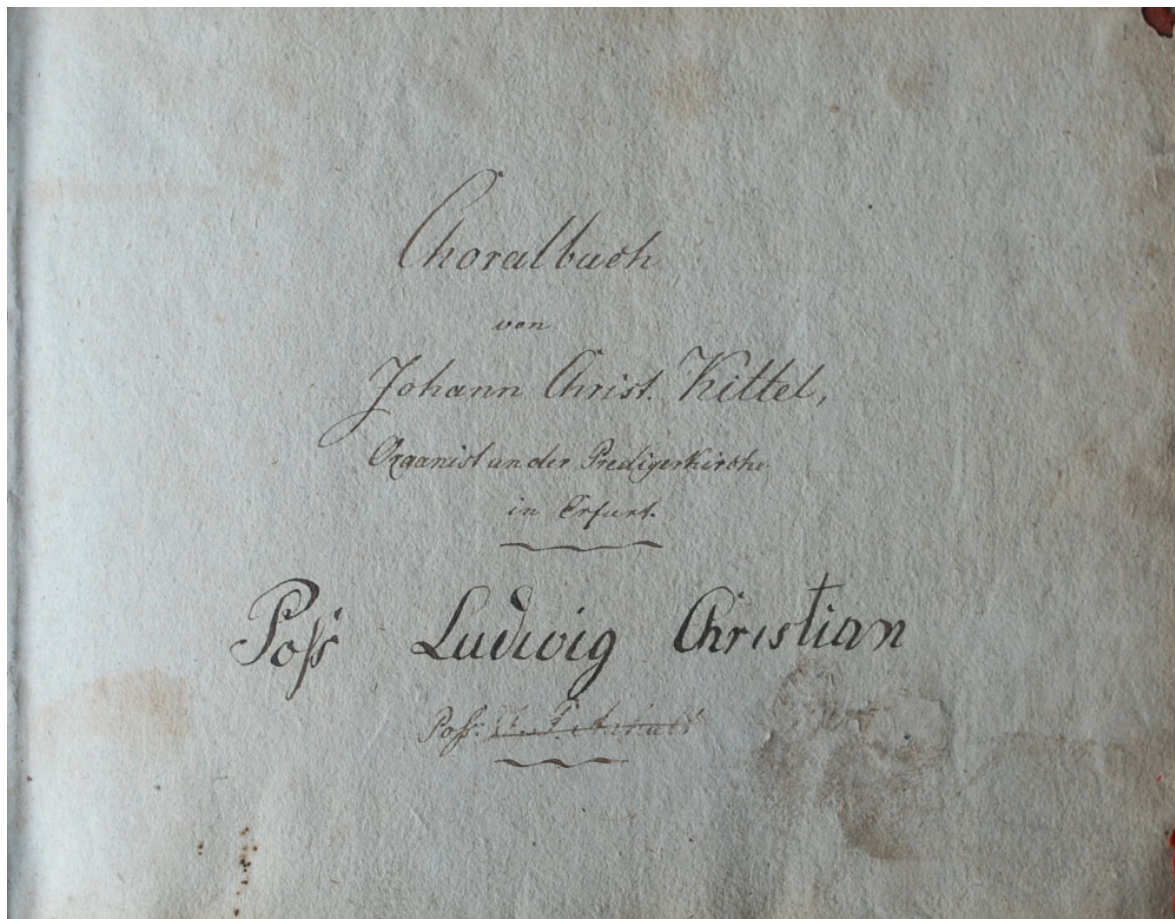 Choralbuch
von
Johann Christ. Kittel,
Organist an der Predigerkirche
in Erfurt.
Poſs Ludwig Christian
Poſs: